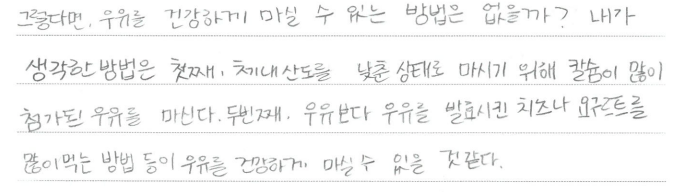 그렇다면, 우유를 건강하게 마실 수 있는 방법은 없을까? 내가
생각한 방법은 첫째, 체내산도를 낮춘 상태로 마시기 위해 칼슘이 많이
첨가된 우유를 마신다. 두번째, 우유보다 우유를 발효시킨 치즈나 요구르트를
많이 먹는 방법 등이 우유를 건강하게 마실 수 있을 것 같다.